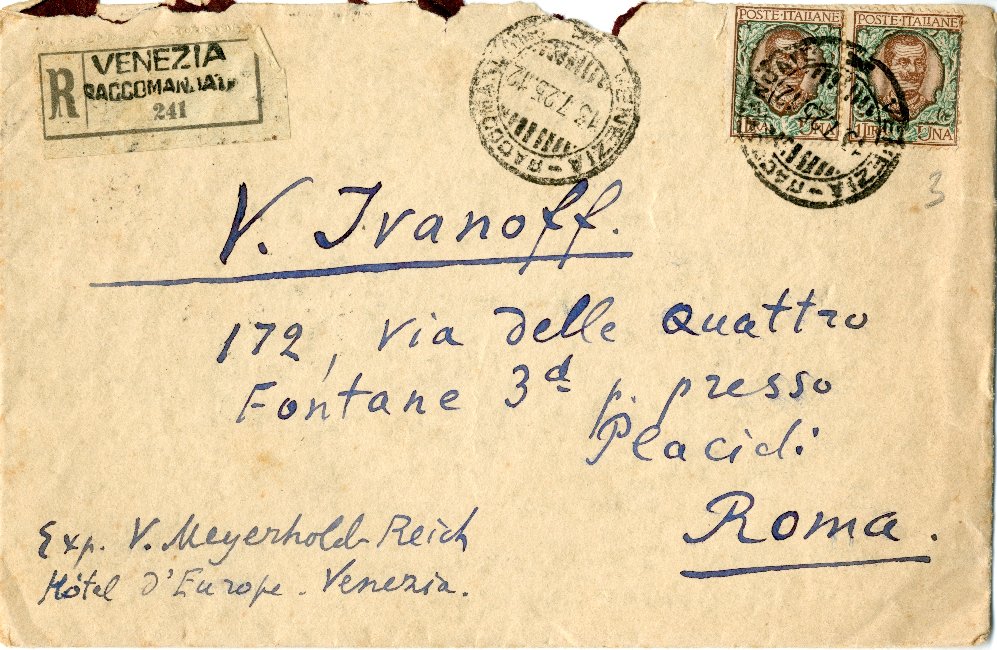 R
VENEZIA
RACCOMANDATE
241
VENEZIA - RACCOMANDATE
13.7.25.12
POSTE·ITALIANE
1 LIRA UNA
POSTE·ITALIANE
1 LIRA UNA
VENEZIA - RACCOMANDATE
3
V. Ivanoff.
172, via delle Quattro
Fontane 3d p. presso
Placidi
Roma.
Exp. V. Meyerhold-Reich
Hôtel d'Europe. Venezia.